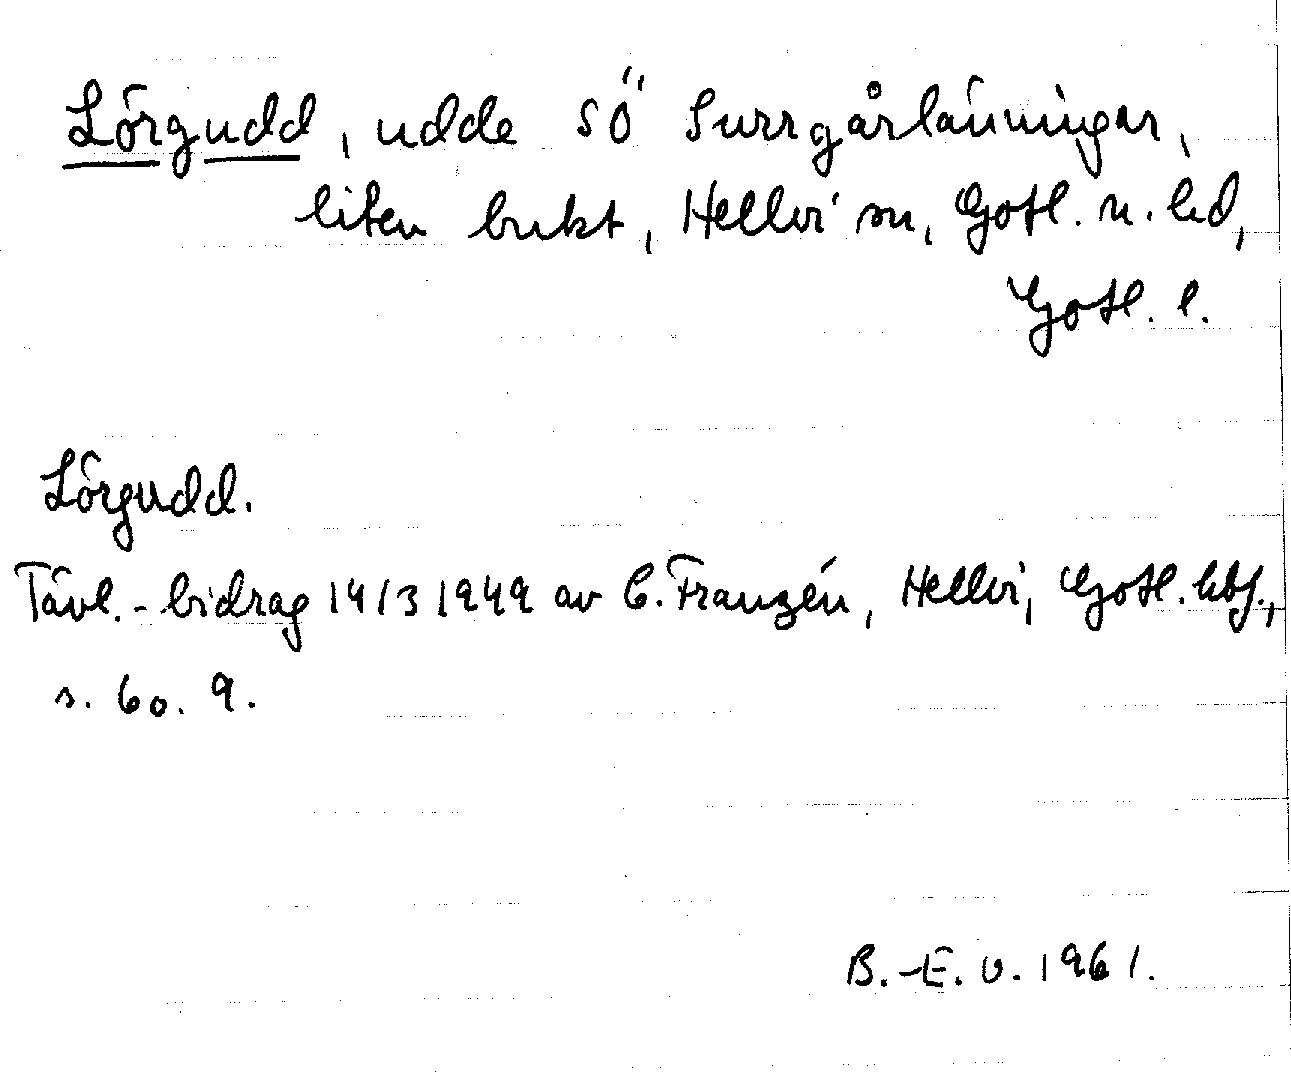 Lörgudd, udde SÖ Surrgårläuningar,
liten bukt, Hellvi sn, Gotl. n. hd,
Gotl. l.
Lörgudd.
Tävl.-bidrag 14/3 1949 av C. Franzén, Hellvi, Gotl. hbf.,
s. 60. 9.
B.-E. U. 1961.